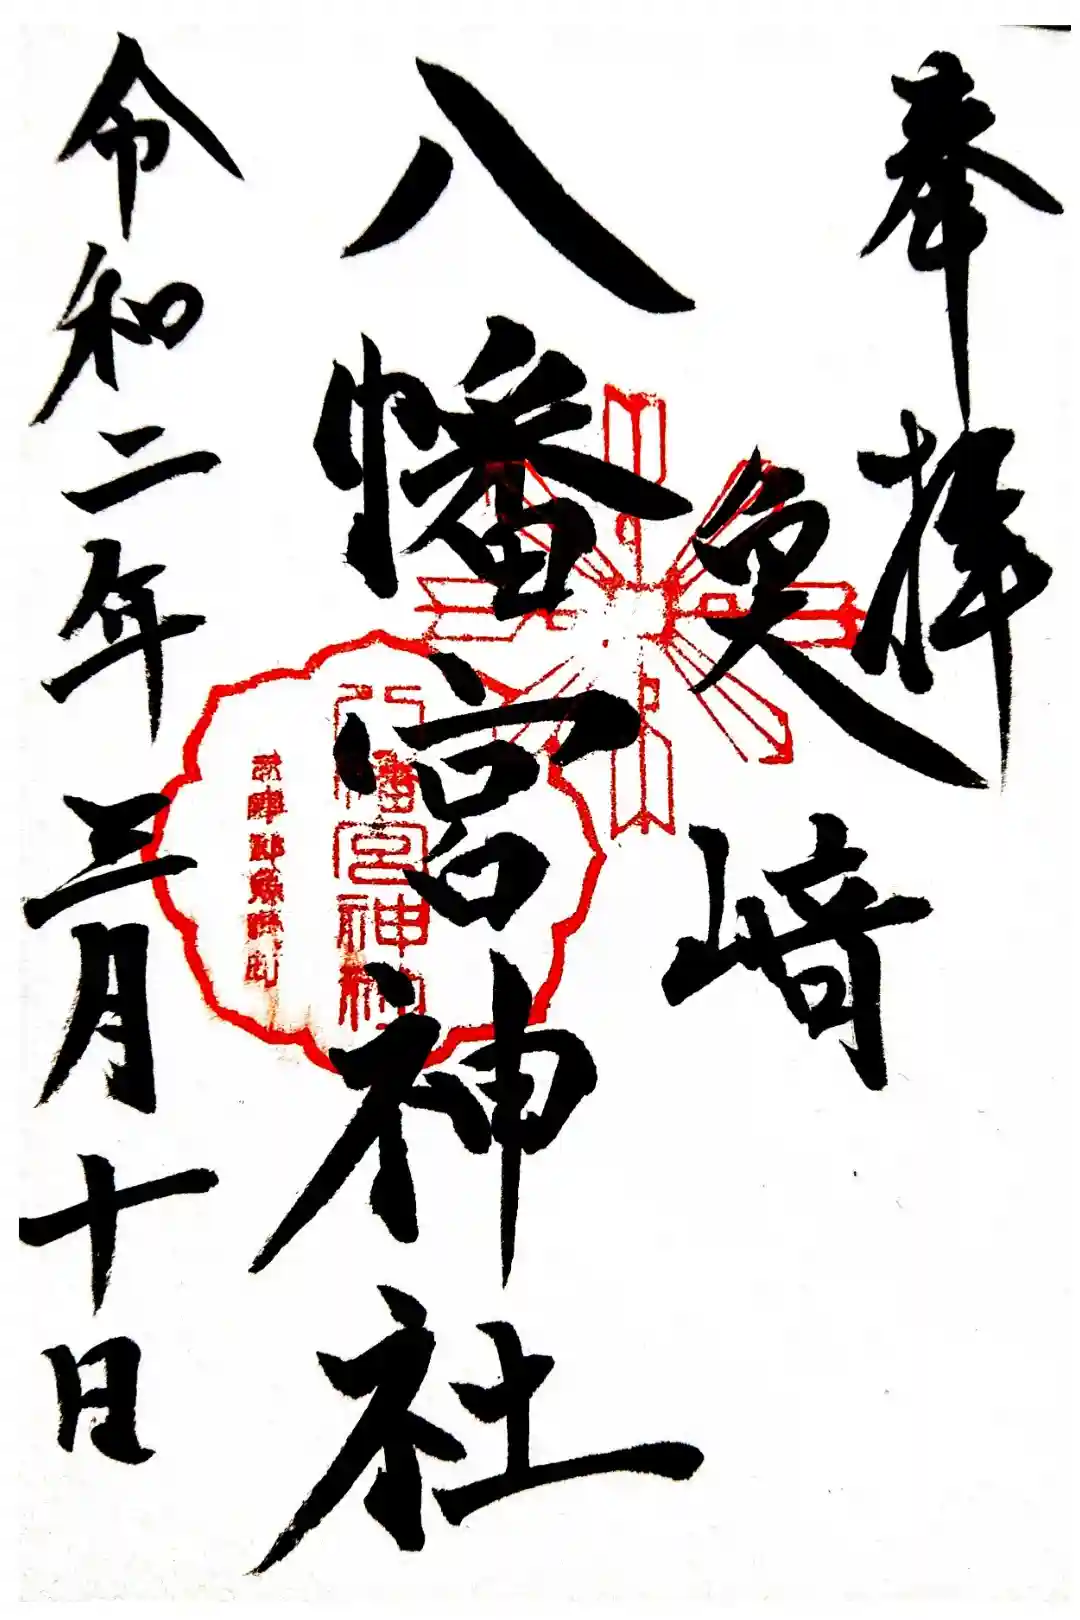 奉拝
更﨑
八幡宮神社
八幡宮神社
令和二年三月十日